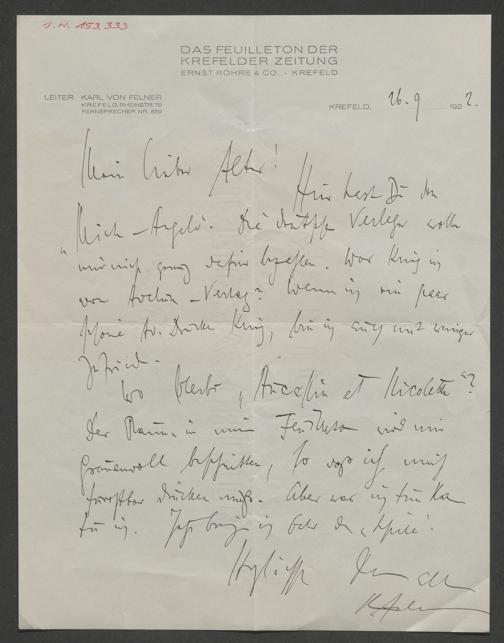 A.N. 153.333
DAS FEUILLETON DER
KREFELDER ZEITUNG
ERNST RÖHRE & CO. - KREFELD
LEITER: KARL VON FELNER
KREFELD, RHEINSTR. 76
FERNSPRECHER NR. 859
KREFELD, 26. 9 192 2.
Mein lieber Alter!
Hier hast Du den
Mich - Angelo. Die deutschen Verleger wollen
mir nicht genug dafür bezahlen. Was krieg ich
vom Avalun - Verlag? Wenn ich ein paar
schöne Av. Drucke krieg, bin ich auch mit weniger
zufrieden.
Wo bleibt „Aucassin et Nicolette"?
Der Raum in meinem Feuilleton wird mir
grauenvoll beschnitten, so dass ich mich
furchtbar drücken muss. Aber was ich tun kann
tu ich. Jetzt bring ich
Herzlichst Dein alter
K. Felner